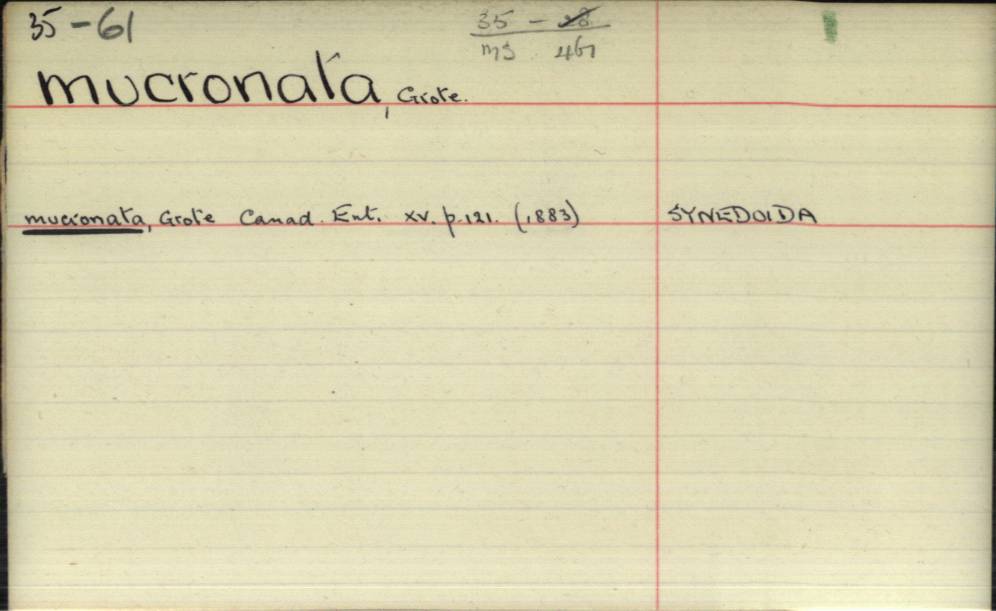 35-61
35 - 28
MS. 461
mucronata, Grote.
mucronata, Grote Canad. Ent. XV. p.121. (1883) SYNEDOIDA